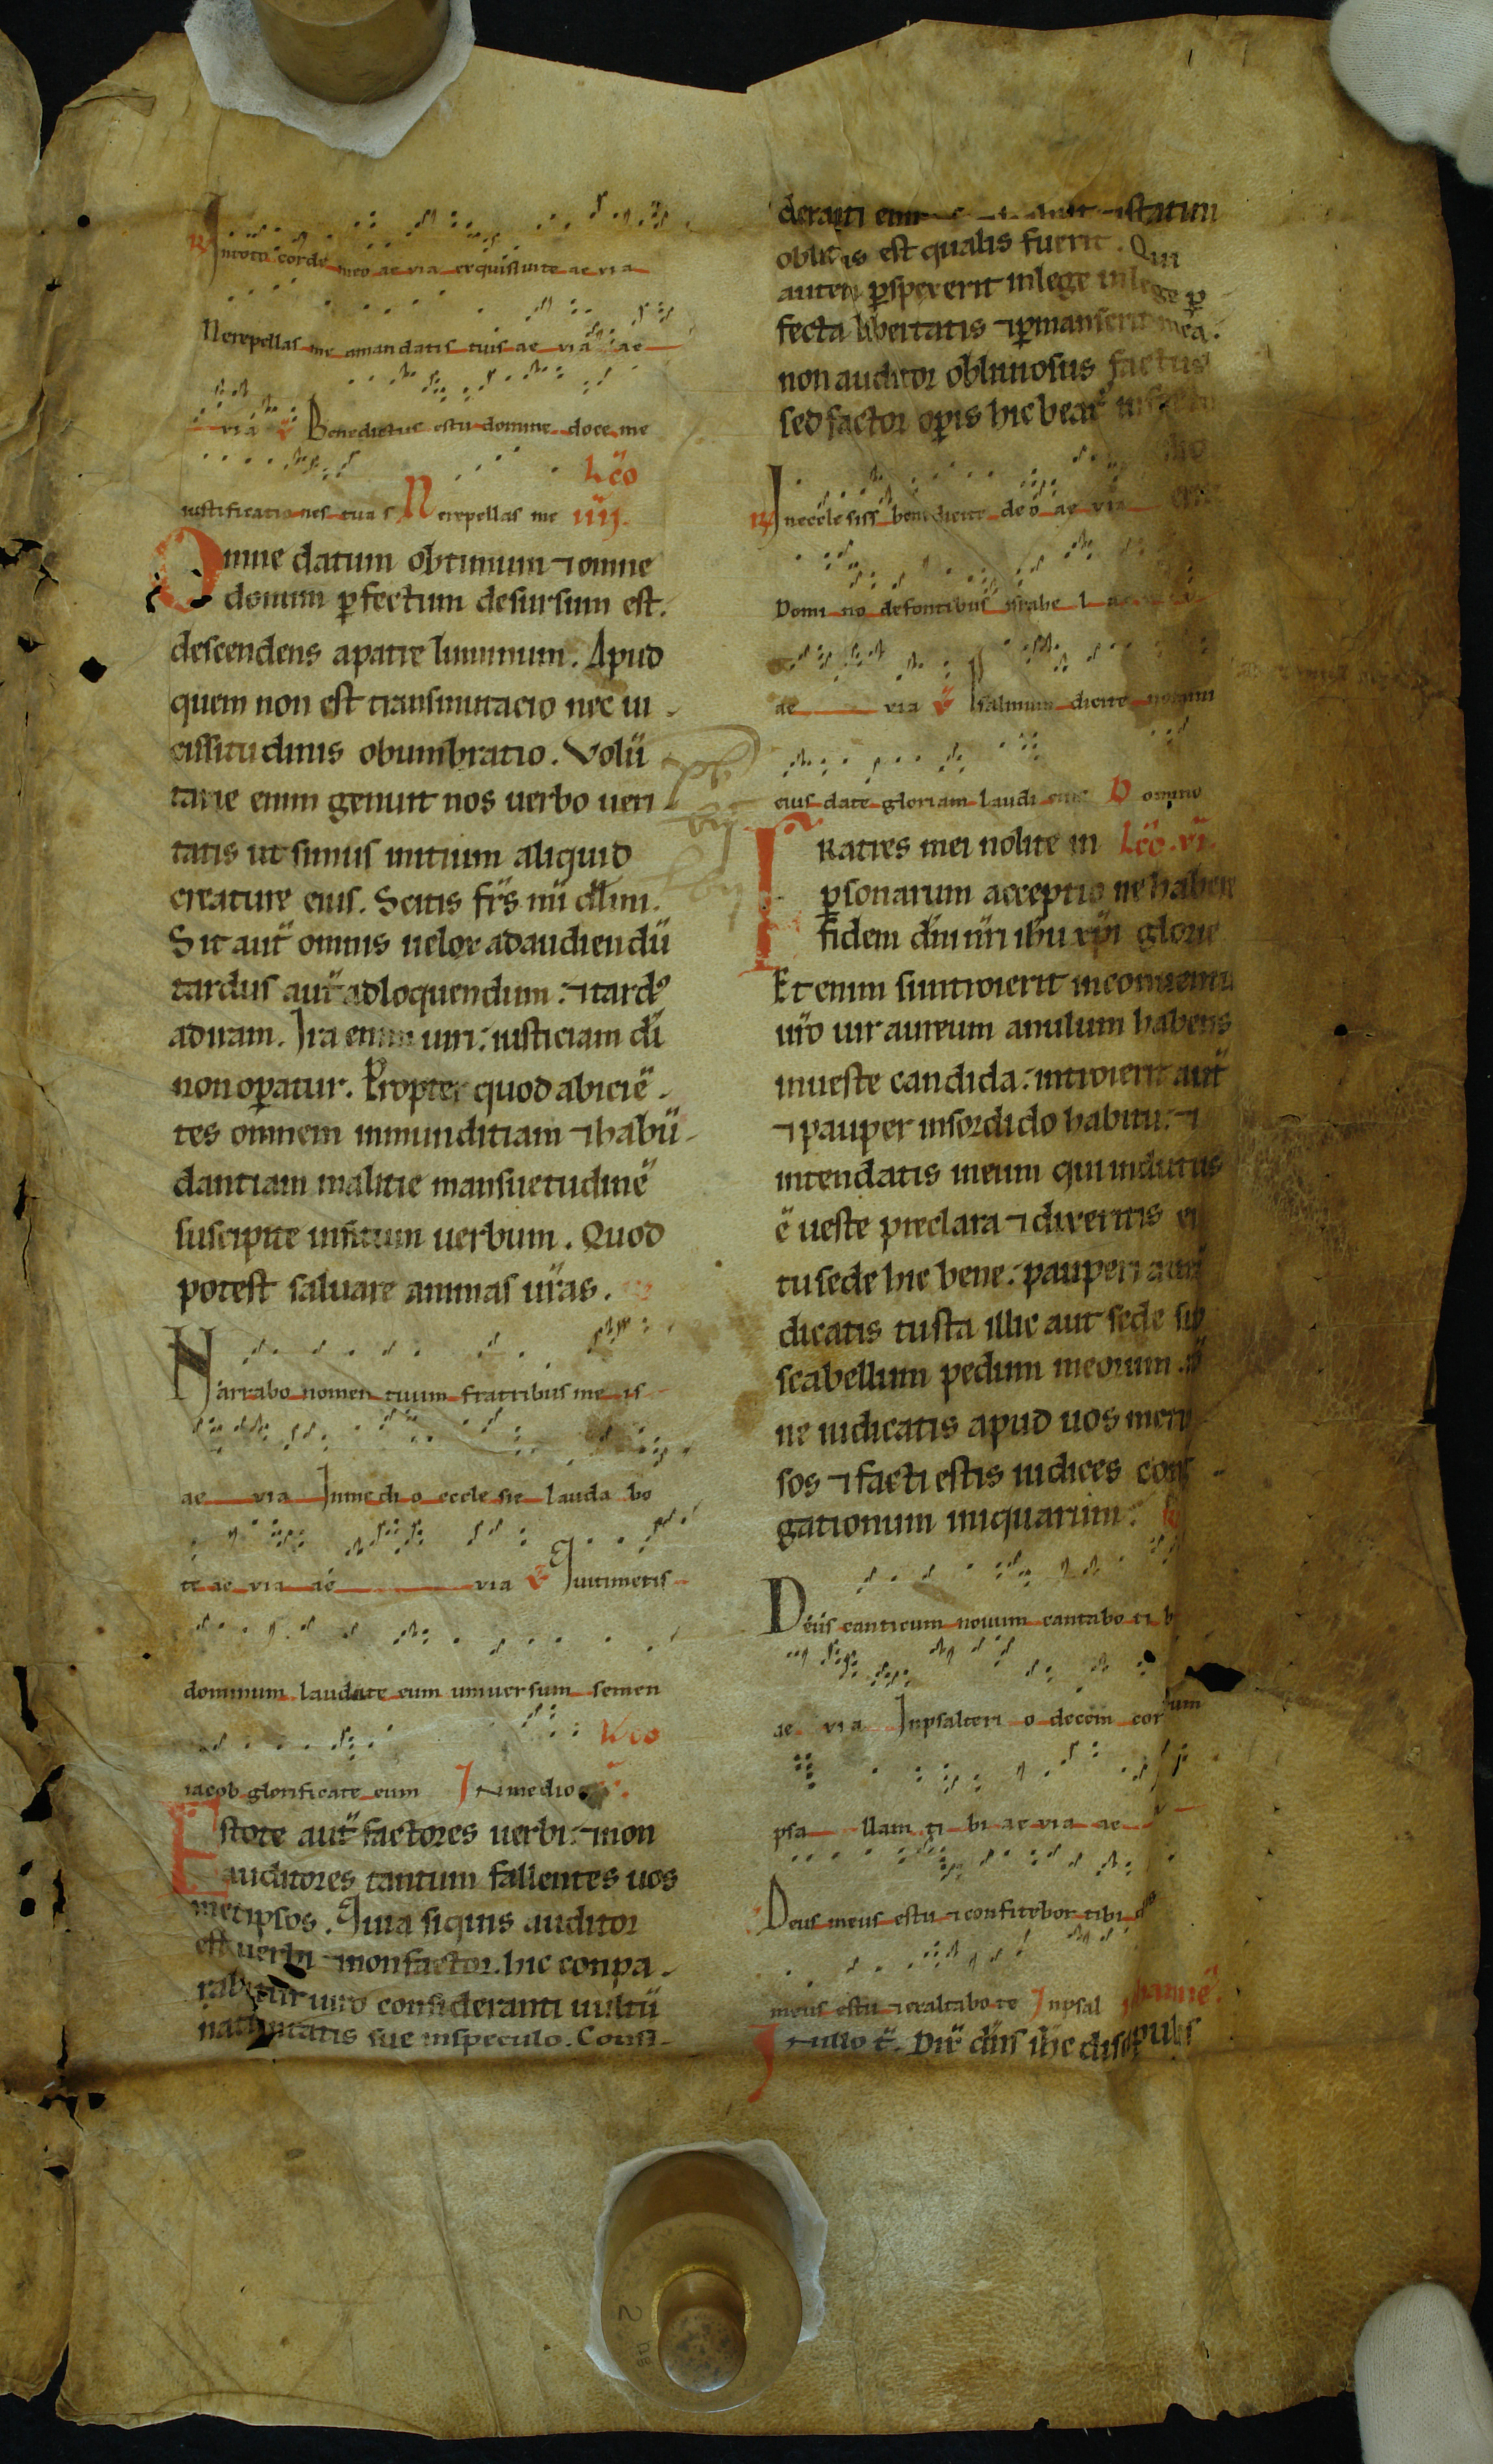 R Intoto corde meo ae via exquisivi te ae via
Ne repellas me amandatis tuis ae via ae
via v Benedictus es tu domine doce me
iustificationes tuas Ne repellas me Lc̄o
iiij.
Omne datum obtimum ⁊ omne
donum ꝑfectum desursum est.
descendens apatre luminum. Apud
quem non est transmutacio nec ui
cissitudinis obumbratio. Volū
tarie enim genuit nos uerbo ueri
tatis ut simus initium aliquid
creature eius. Scitis fr̄s m̄i dl̄mi.
Sit aut̄ omnis uelox adaudiendū
tardus aut̄ adloquendum: ⁊ tardꝰ
adiram. Ira enim uiri: iusticiam dī
non oꝑatur. Propter quod abiciē
tes omnem inmunditiam ⁊ habū
dantiam malitie mansuetudinē
suscipite insitum uerbum. Quod
potest saluare animas ur̄as.
Narrabo nomen tuum fratribus me is
ae via Inmedi o eccle sie lauda bo
te ae via ae via v Qui timetis
dominum laudate eum universum semen
iacob glorificate eum In medio Lc̄o
Estote aut̄ factores uerbi: ⁊ non
auditores tantum fallentes uos
metipsos. Quia siquis auditor
est uerbi ⁊ non factor. hic conpa
rabitur uiro consideranti uultū
natiuitatis sue inspeculo. Consi
derauit enim statim
oblitus est qualis fuerit. Qui
autem ꝑspexerit inlege
fecta libertatis ⁊ ꝑmanserit mea.
non auditor obliuiosus factus
sed factor oꝑis hic beat᷑
R Inecclesiis benedicite deo ae via
Domi no defontibus israhe l
ae via v Psalmum dicite nomini
eius date gloriam laudi eius D omino
Fratres mei nolite in Lc̄o. vi.
ꝑsonarum acceptione habere
fidem dn̄i nr̄i ih̄u xp̄i glorie
Et enim si introierit inconuentu
ur̄o uir aureum anulum habens
inueste candida: introierit aut̄
⁊ pauper insordido habitu: ⁊
intendatis ineum qui indutus
ē ueste preclara ⁊ dixeritis ei
tu sede hic bene: pauperi aut̄
dicatis tu sta illic aut sede sub
scabellum pedum meorum.
ne iudicatis apud uos met
sos ⁊ facti estis iudices cogi
gationum iniquarum:
Deus canticum nouum cantabo ti b
ae via Inpsalteri o decem cordum
psa llam ti bi ae via ae
Deus meus es tu ⁊ confitebor tibi ds̄
meus es tu ⁊ exaltabo te Inpsal
In illo t̄. Dix̄ dn̄s ih̄c discipulis